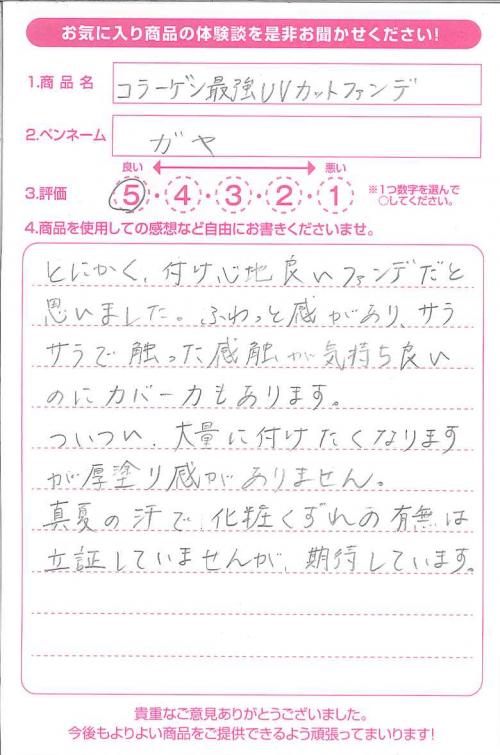 お気に入り商品の体験談を是非お聞かせください!
1.商品名 コラーゲン最強UVカットファンデ
2.ペンネーム ガヤ
良い 悪い
3.評価 5・4・3・2・1 ※1つ数字を選んで
○してください。
4.商品を使用しての感想など自由にお書きくださいませ。
とにかく、付け心地良いファンデだと
思いました。ふわっと感があり、サラ
サラで触った感触が気持ち良い
のにカバー力もあります。
ついつい、大量に付けたくなります
が厚塗り感がありません。
真夏の汗で化粧くずれの有無は
立証していませんが、期待しています。
貴重なご意見ありがとうございました。
今後もよりよい商品をご提供できるよう頑張ってまいります!